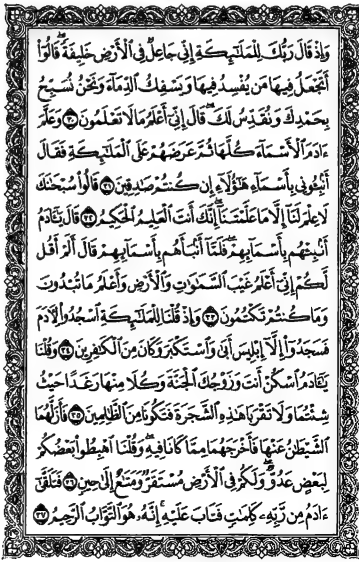 وَإِذْ قَالَ رَبُّكَ لِلْمَلَٰٓئِكَةِ إِنِّى جَاعِلٌ فِى ٱلْأَرْضِ خَلِيفَةً ۖ قَالُوٓا۟
أَتَجْعَلُ فِيهَا مَن يُفْسِدُ فِيهَا وَيَسْفِكُ ٱلدِّمَآءَ وَنَحْنُ نُسَبِّحُ
بِحَمْدِكَ وَنُقَدِّسُ لَكَ ۖ قَالَ إِنِّىٓ أَعْلَمُ مَا لَا تَعْلَمُونَ ٣٠ وَعَلَّمَ
ءَادَمَ ٱلْأَسْمَآءَ كُلَّهَا ثُمَّ عَرَضَهُمْ عَلَى ٱلْمَلَٰٓئِكَةِ فَقَالَ
أَنۢبِـُٔونِى بِأَسْمَآءِ هَٰٓؤُلَآءِ إِن كُنتُمْ صَٰدِقِينَ ٣١ قَالُوا۟ سُبْحَٰنَكَ
لَا عِلْمَ لَنَآ إِلَّا مَا عَلَّمْتَنَآ ۖ إِنَّكَ أَنتَ ٱلْعَلِيمُ ٱلْحَكِيمُ ٣٢ قَالَ يَٰٓـَٔادَمُ
أَنۢبِئْهُم بِأَسْمَآئِهِمْ ۖ فَلَمَّآ أَنۢبَأَهُم بِأَسْمَآئِهِمْ قَالَ أَلَمْ أَقُل
لَّكُمْ إِنِّىٓ أَعْلَمُ غَيْبَ ٱلسَّمَٰوَٰتِ وَٱلْأَرْضِ وَأَعْلَمُ مَا تُبْدُونَ
وَمَا كُنتُمْ تَكْتُمُونَ ٣٣ وَإِذْ قُلْنَا لِلْمَلَٰٓئِكَةِ ٱسْجُدُوا۟ لِءَادَمَ
فَسَجَدُوٓا۟ إِلَّآ إِبْلِيسَ أَبَىٰ وَٱسْتَكْبَرَ وَكَانَ مِنَ ٱلْكَٰفِرِينَ ٣٤ وَقُلْنَا
يَٰٓـَٔادَمُ ٱسْكُنْ أَنتَ وَزَوْجُكَ ٱلْجَنَّةَ وَكُلَا مِنْهَا رَغَدًا حَيْثُ
شِئْتُمَا وَلَا تَقْرَبَا هَٰذِهِ ٱلشَّجَرَةَ فَتَكُونَا مِنَ ٱلظَّٰلِمِينَ ٣٥ فَأَزَلَّهُمَا
ٱلشَّيْطَٰنُ عَنْهَا فَأَخْرَجَهُمَا مِمَّا كَانَا فِيهِ ۖ وَقُلْنَا ٱهْبِطُوا۟ بَعْضُكُمْ
لِبَعْضٍ عَدُوٌّ ۖ وَلَكُمْ فِى ٱلْأَرْضِ مُسْتَقَرٌّ وَمَتَٰعٌ إِلَىٰ حِينٍ ٣٦ فَتَلَقَّىٰٓ
ءَادَمُ مِن رَّبِّهِۦ كَلِمَٰتٍ فَتَابَ عَلَيْهِ ۚ إِنَّهُۥ هُوَ ٱلتَّوَّابُ ٱلرَّحِيمُ ٣٧